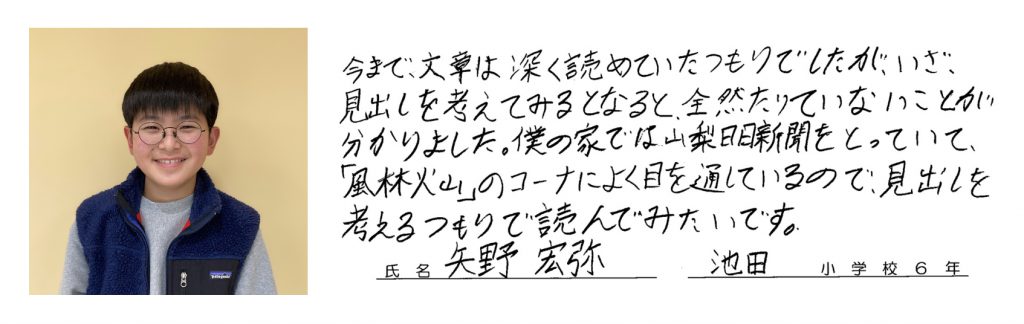 今まで、文章は深く読めていたつもりでしたが、いざ、
見出しを考えてみるとなると、全然たりていないことが
分かりました。僕の家では山梨日日新聞をとっていて、
「風林火山」のコーナによく目を通しているので、見出しを
考えるつもりで読んでみたいです。
氏名 矢野 宏弥 池田 小学校6年
patagonia